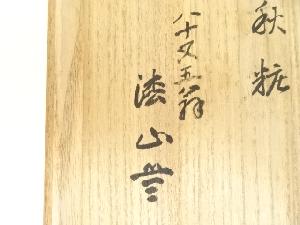 秋粧
八十又五翁
濤山誉